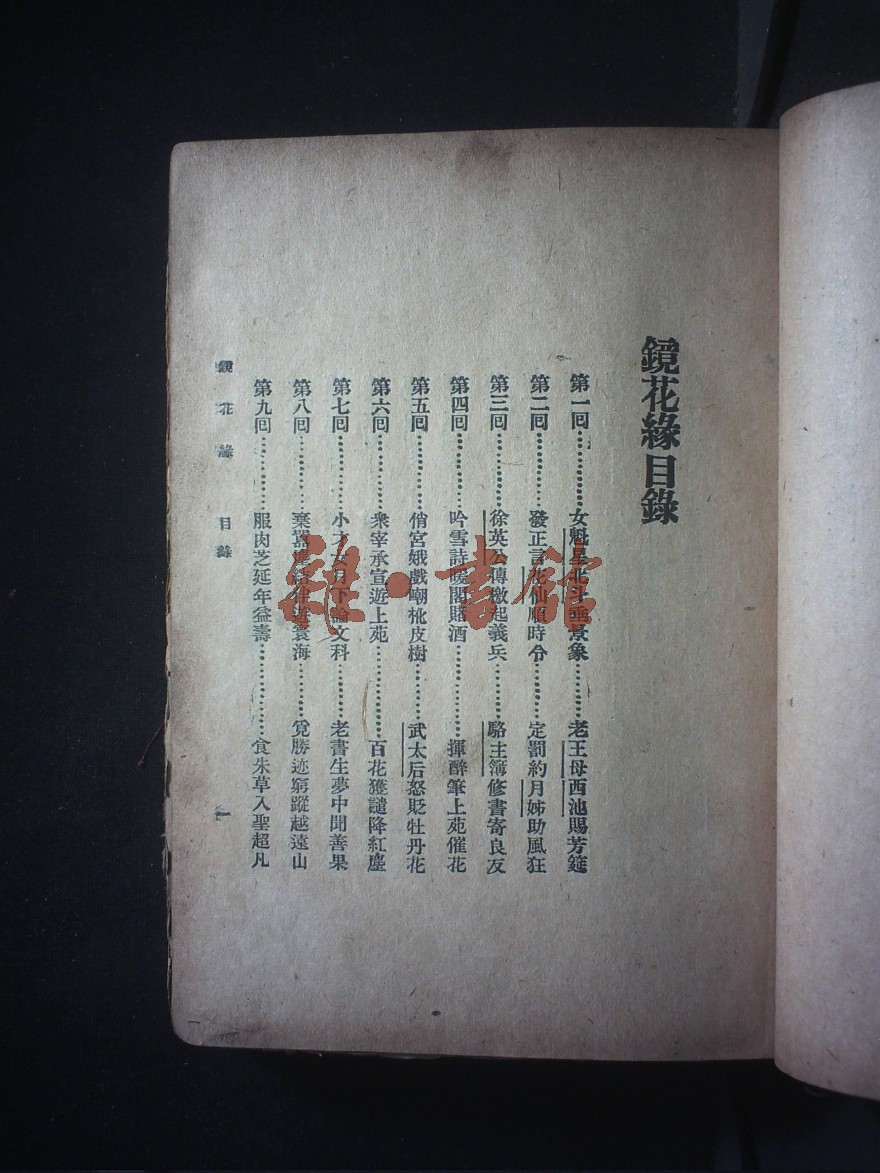 鏡花緣目錄
第一回……………女魁星北斗垂景象……………老王母西池賜芳筵
第二回……………發正言花仙順時令……………定罰約月姊助風狂
第三回……………徐英公傳檄起義兵……………駱主簿修書寄良友
第四回……………吟雪詩暖閣賭酒……………揮醉筆上苑催花
第五回……………俏宮娥戲嘲枇皮樹……………武太后怒貶牡丹花
第六回……………衆宰承宣遊上苑……………百花獲譴降紅塵
第七回……………小才女月下論文科……………老書生夢中聞善果
第八回……………棄囂塵結伴遊寰海……………覓勝迹窮蹤越遠山
第九回……………服肉芝延年益壽……………食朱草入聖超凡
鏡花緣 目錄 一
雜·書館